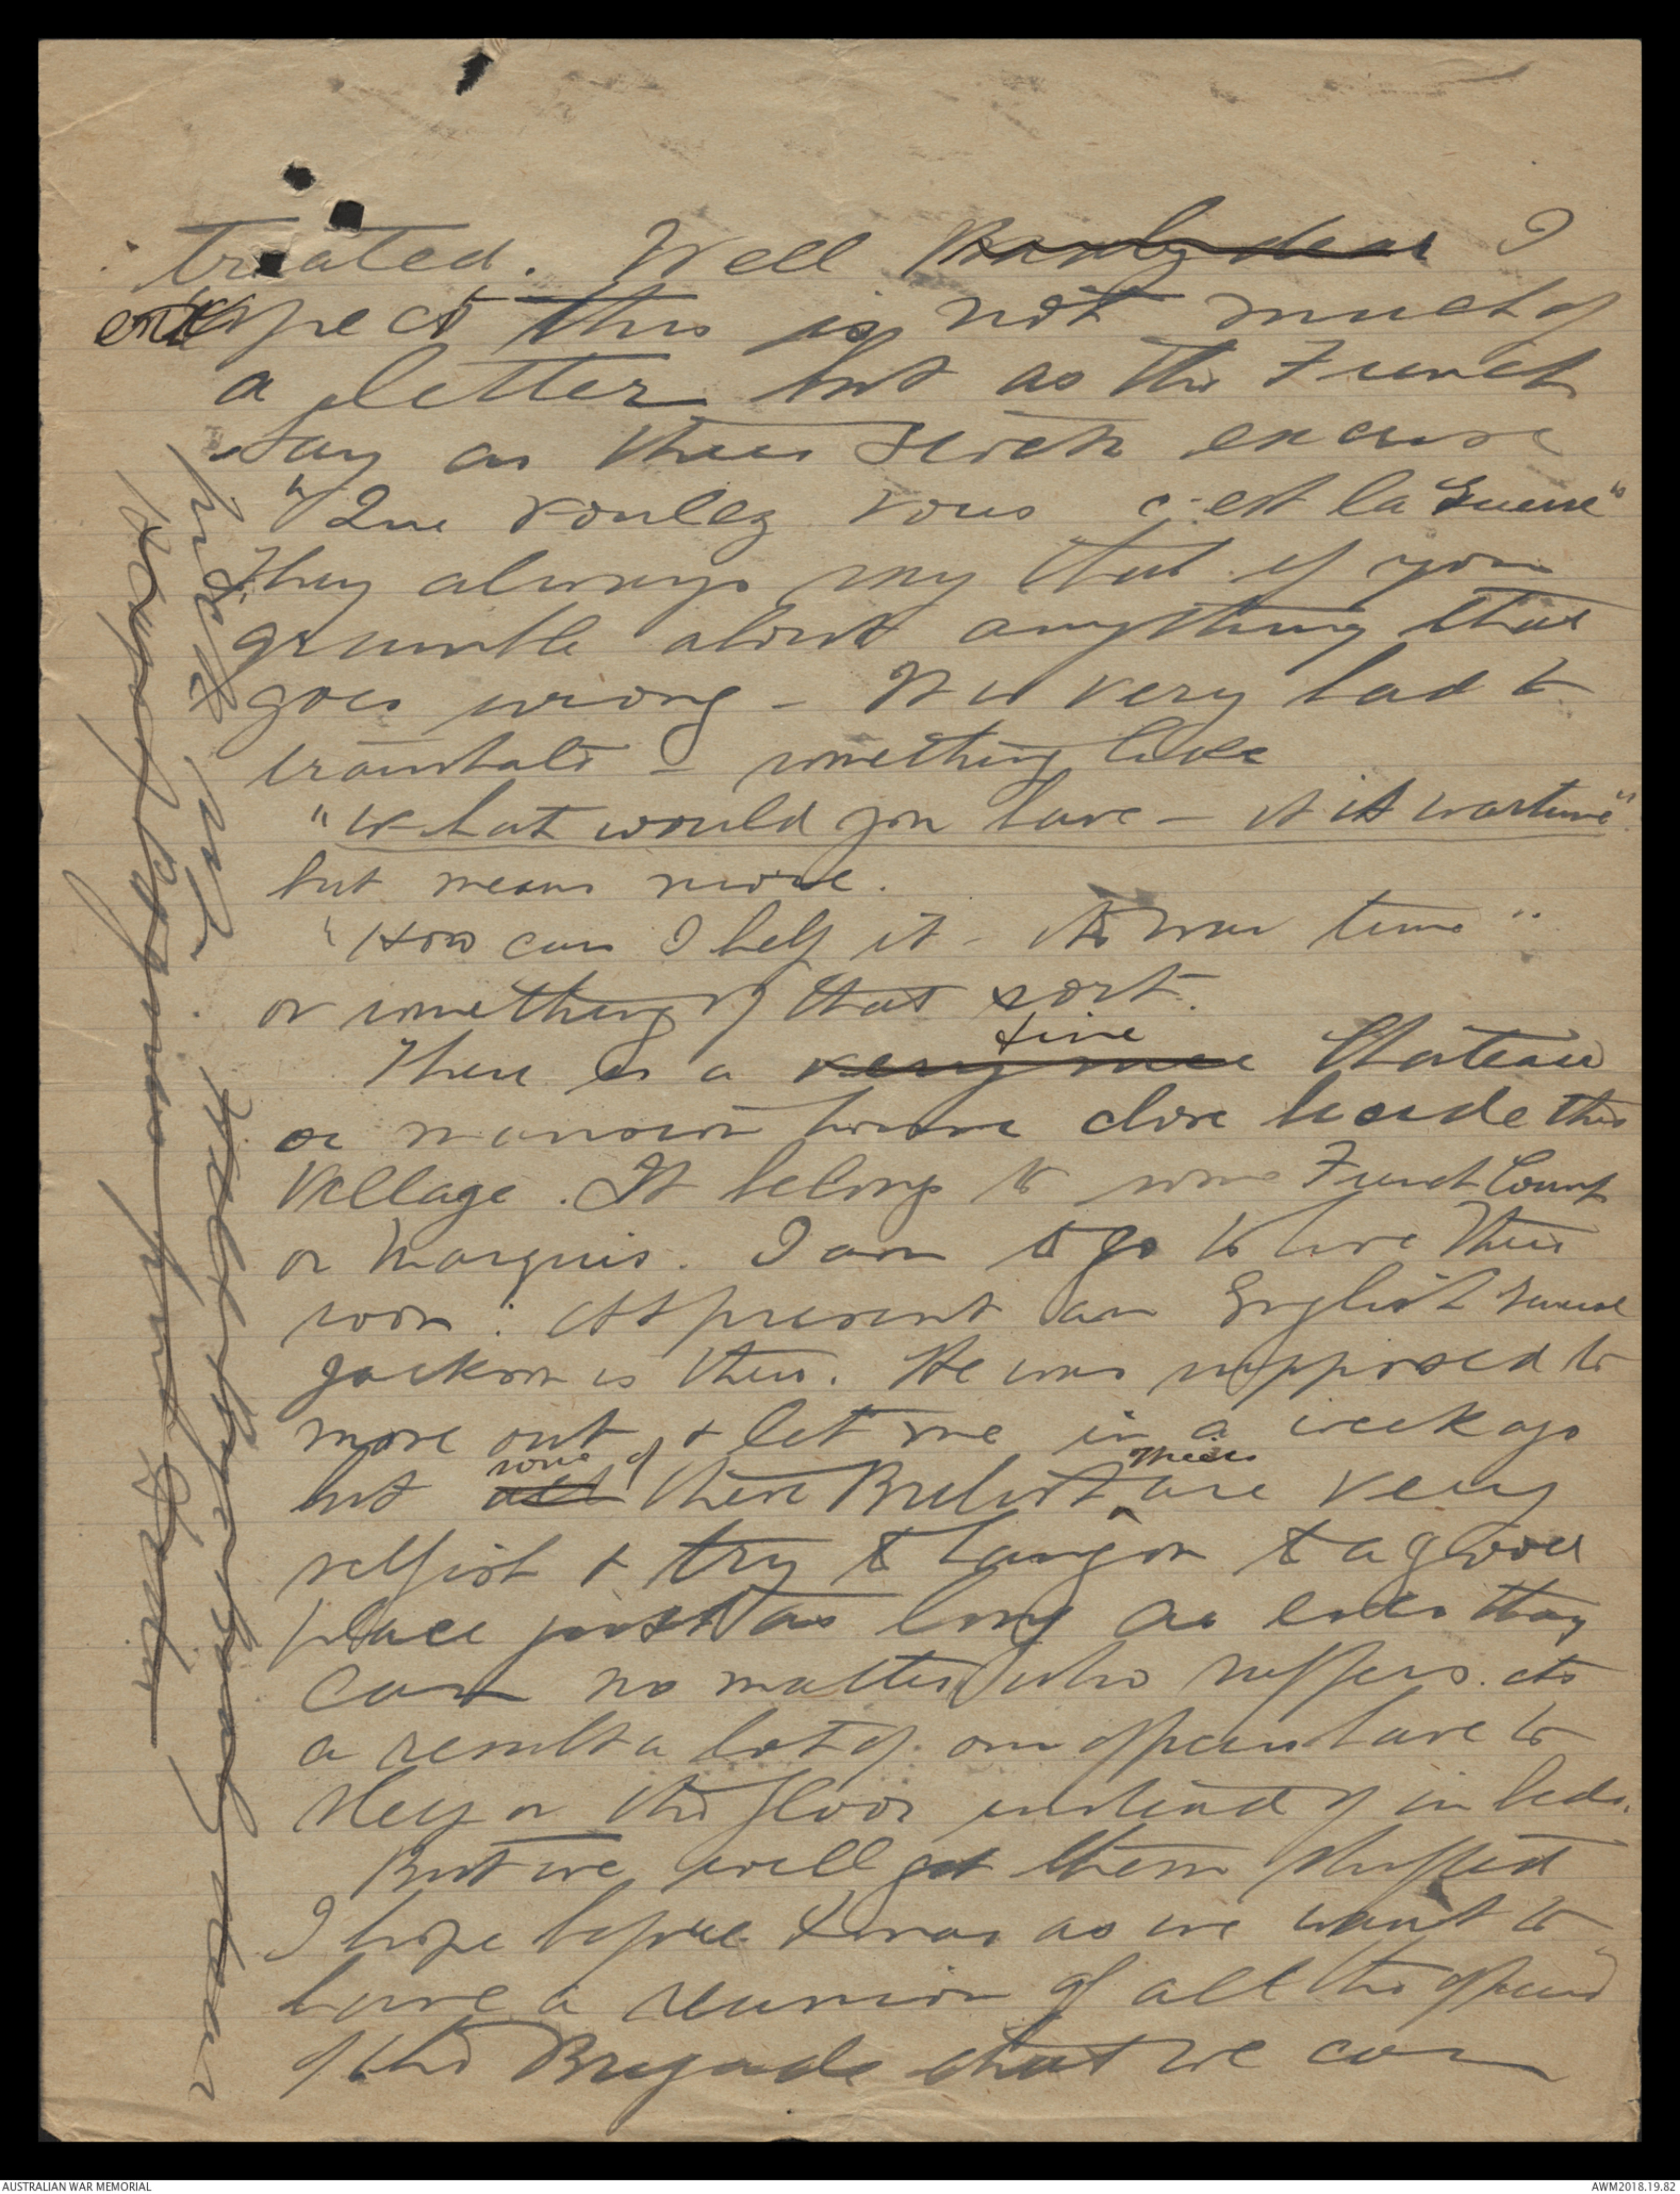 treated. Well Barb dear I
expect this is not much of
a letter but as the French
say as their stock excuse
"Que voulez vous c'est la Guerre"
They always say that if you
grumble about anything that
goes wrong - It is very hard to
translate - something like
"What would you have - it is wartime"
but means more.
"How can I help it - its war time"
or something of that sort.
fine
There is a very nice Chateau
or mansion house close beside this
village. It belongs to some French Count
or Marquis. I am to go to live there
soon. At present an English General
Jackson is there. He was supposed to
move out & let me in a week ago
some of
but all these British are very
selfish & try to hang on to a good
place just as long as ever they
can no matter who suffers. As
a result a lot of our officers have to
sleep on the floor instead of in beds.
But we will get them shifted
I hope before Xmas as we want to
have a reunion of all the officers
of the Brigade that we can